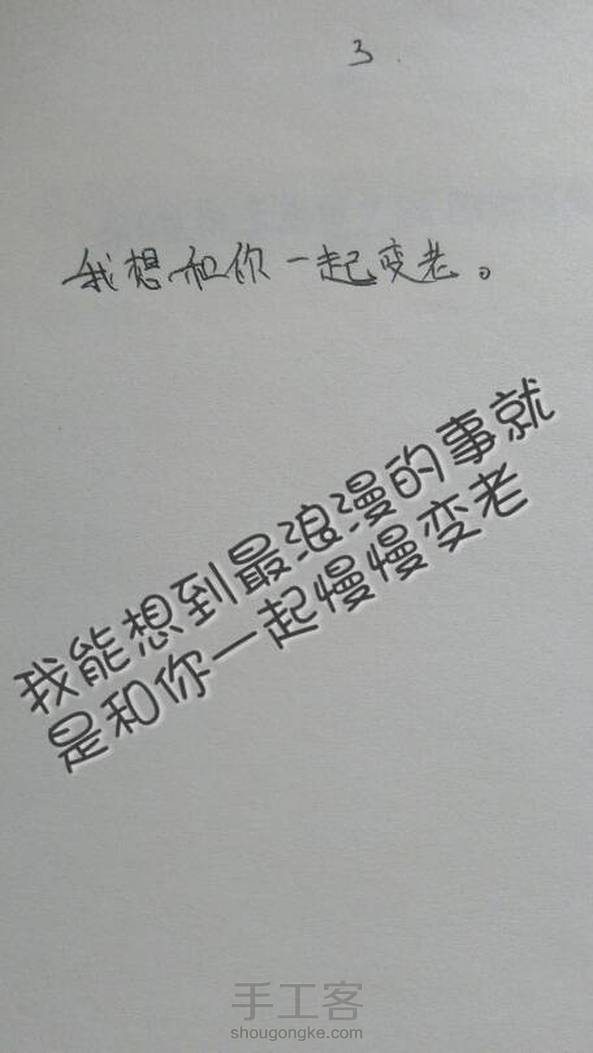 3.
我想和你一起变老。
我能想到最浪漫的事就
是和你一起慢慢变老
手工客
shougongke.com